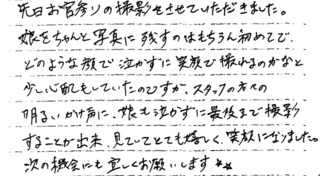 先日お宮参りの撮影をさせていただきました。
娘をちゃんと写真に残すのはもちろん初めてで、
どのような顔で泣かずに笑顔で撮れるのかなと
少し心配もしていたのですが、スタッフの方々の
明るいかけ声に、娘も泣かずに最後まで撮影
することが出来、見ていてとても嬉しく、笑顔になりました。
次の機会にも宜しくお願いします★★